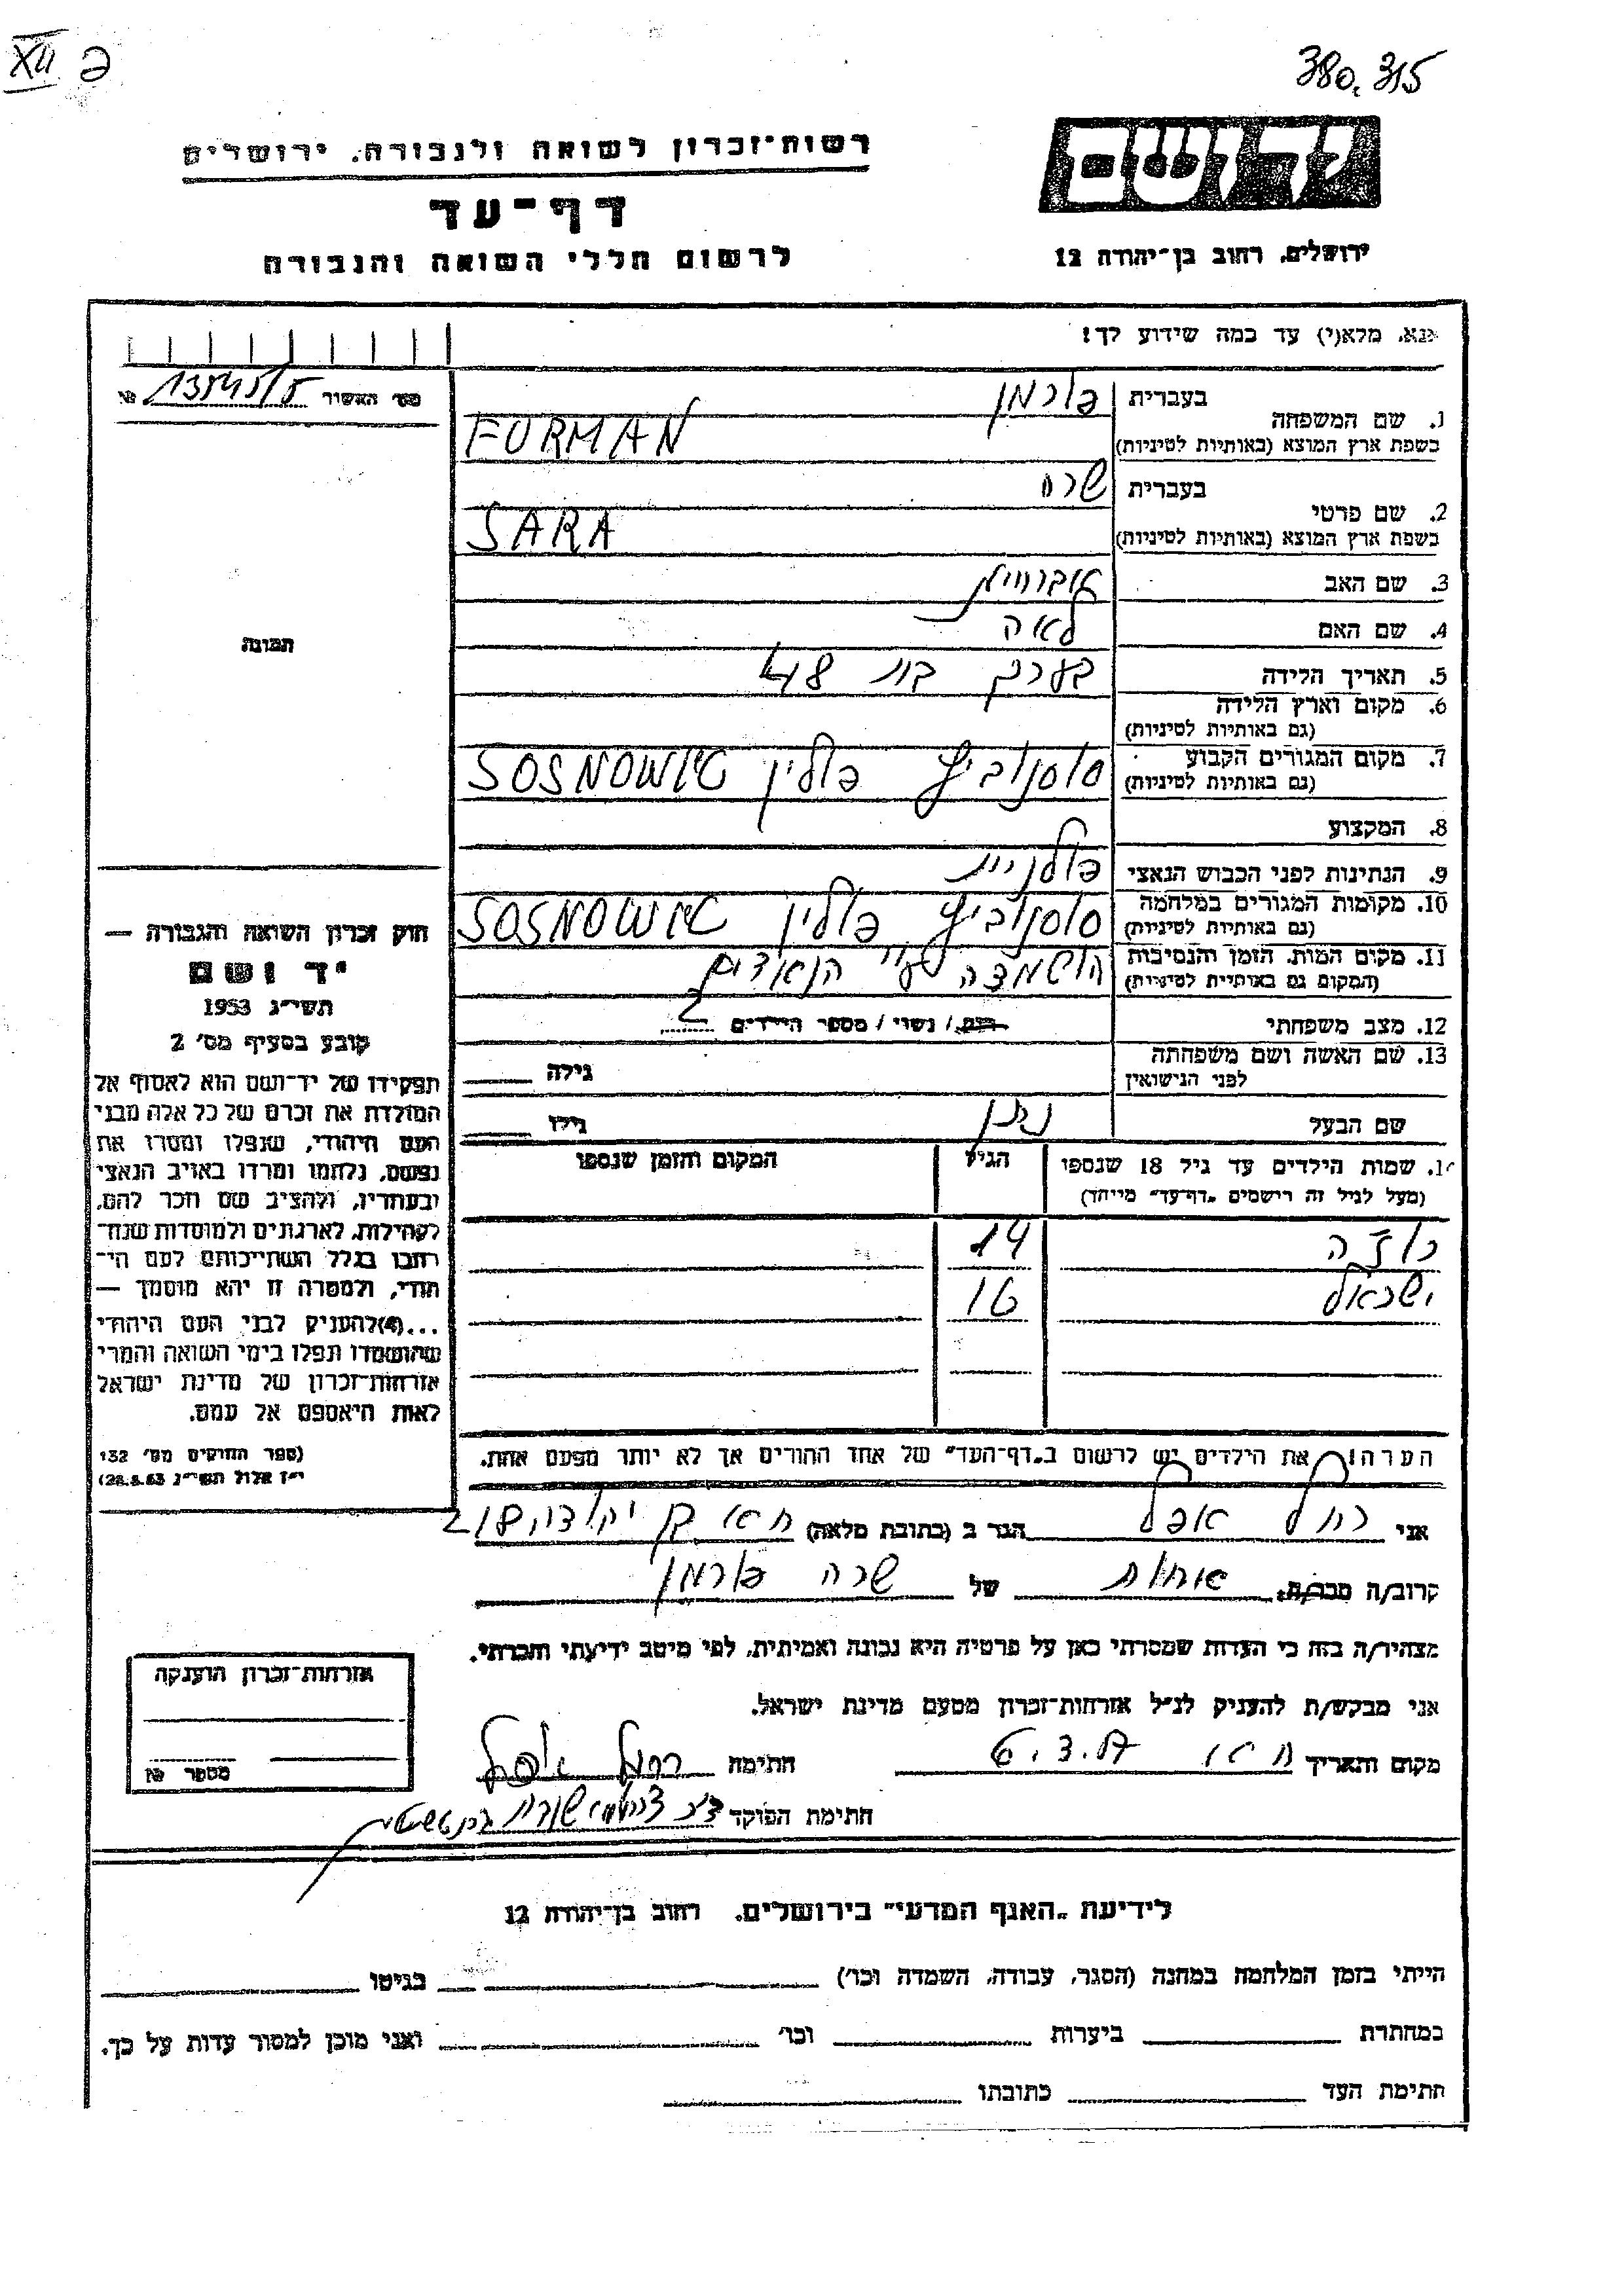 XII
380.315
רשות־זכרון לשואה ולגבורה, ירושלים
דף־עד
לרשום חללי השואה והגבורה
יד ושם
ירושלים, רחוב בן־יהודה 12
אנא, מלא(י) עד כמה שידוע לך!
מס׳ האשור № 13545/5
1. שם המשפחה בעברית פורמן
בשפת ארץ המוצא (באותיות לטיניות) FURMAN
2. שם פרטי בעברית שרה
בשפת ארץ המוצא (באותיות לטיניות) SARA
3. שם האב
4. שם האם לאה
5. תאריך הלידה בערך בת 48
6. מקום וארץ הלידה
(גם באותיות לטיניות)
7. מקום המגורים הקבוע סוסנוביץ פולין SOSNOWITZ
(גם באותיות לטיניות)
8. המקצוע
9. הנתינות לפני הכבוש הנאצי פולנית
10. מקומות המגורים במלחמה סוסנוביץ פולין SOSNOWITZ
(גם באותיות לטיניות)
11. מקום המות, הזמן והנסיבות הושמדה ע״י הנאצים
(המקום גם באותיות לטיניות)
12. מצב משפחתי רווק / נשוי / מספר הילדים 2
13. שם האשה ושם משפחתה גילה
לפני הנישואין
שם הבעל נתן גילו
14. שמות הילדים עד גיל 18 שנספו הגיל המקום והזמן שנספו
(מעל לגיל זה רישמים ״דף־עד״ מייחד)
14
ישראל 16
הערה: את הילדים יש לרשום ב״דף־העד״ של אחד ההורים אך לא יותר מפעם אחת.
תמונה
חוק זכרון השואה והגבורה —
יד ושם
תשי״ג 1953
קובע בסעיף מס׳ 2
תפקידו של יד־ושם הוא לאסוף אל
המולדת את זכרם של כל אלה מבני
העם היהודי, שנפלו ומסרו את
נפשם, נלחמו ומרדו באויב הנאצי
ובעוזריו, ולהציב שם וזכר להם,
לקהילות, לארגונים ולמוסדות שנח־
רבו בגלל השתייכותם לעם הי־
הודי, ולמטרה זו יהא מוסמך —
...(4)להעניק לבני העם היהודי
שהושמדו ונפלו בימי השואה והמרי
אזרחות־זכרון של מדינת ישראל
לאות היאספם אל עמם.
(ספר החוקים מס׳ 132
י״ז אלול תשי״ג 28.8.53)
אני רחל אפל הגר ב (כתובת מלאה)
קרוב/ה מכר/ת: אחות של שרה פורמן
מצהיר/ה בזה כי העדות שמסרתי כאן על פרטיה היא נכונה ואמיתית, לפי מיטב ידיעתי והכרתי.
אני מבקש/ת להעניק לנ״ל אזרחות־זכרון מטעם מדינת ישראל.
מקום ותאריך חתימה רחל אפל
חתימת הפוקד
אזרחות־זכרון הוענקה
מספר №
לידיעת ״האגף המדעי״ בירושלים, רחוב בן־יהודה 12
הייתי בזמן המלחמה במחנה (הסגר, עבודה, השמדה וכו׳) בגיטו
במחתרת ביערות וכו׳ ואני מוכן למסור עדות על כך.
חתימת העד כתובתו